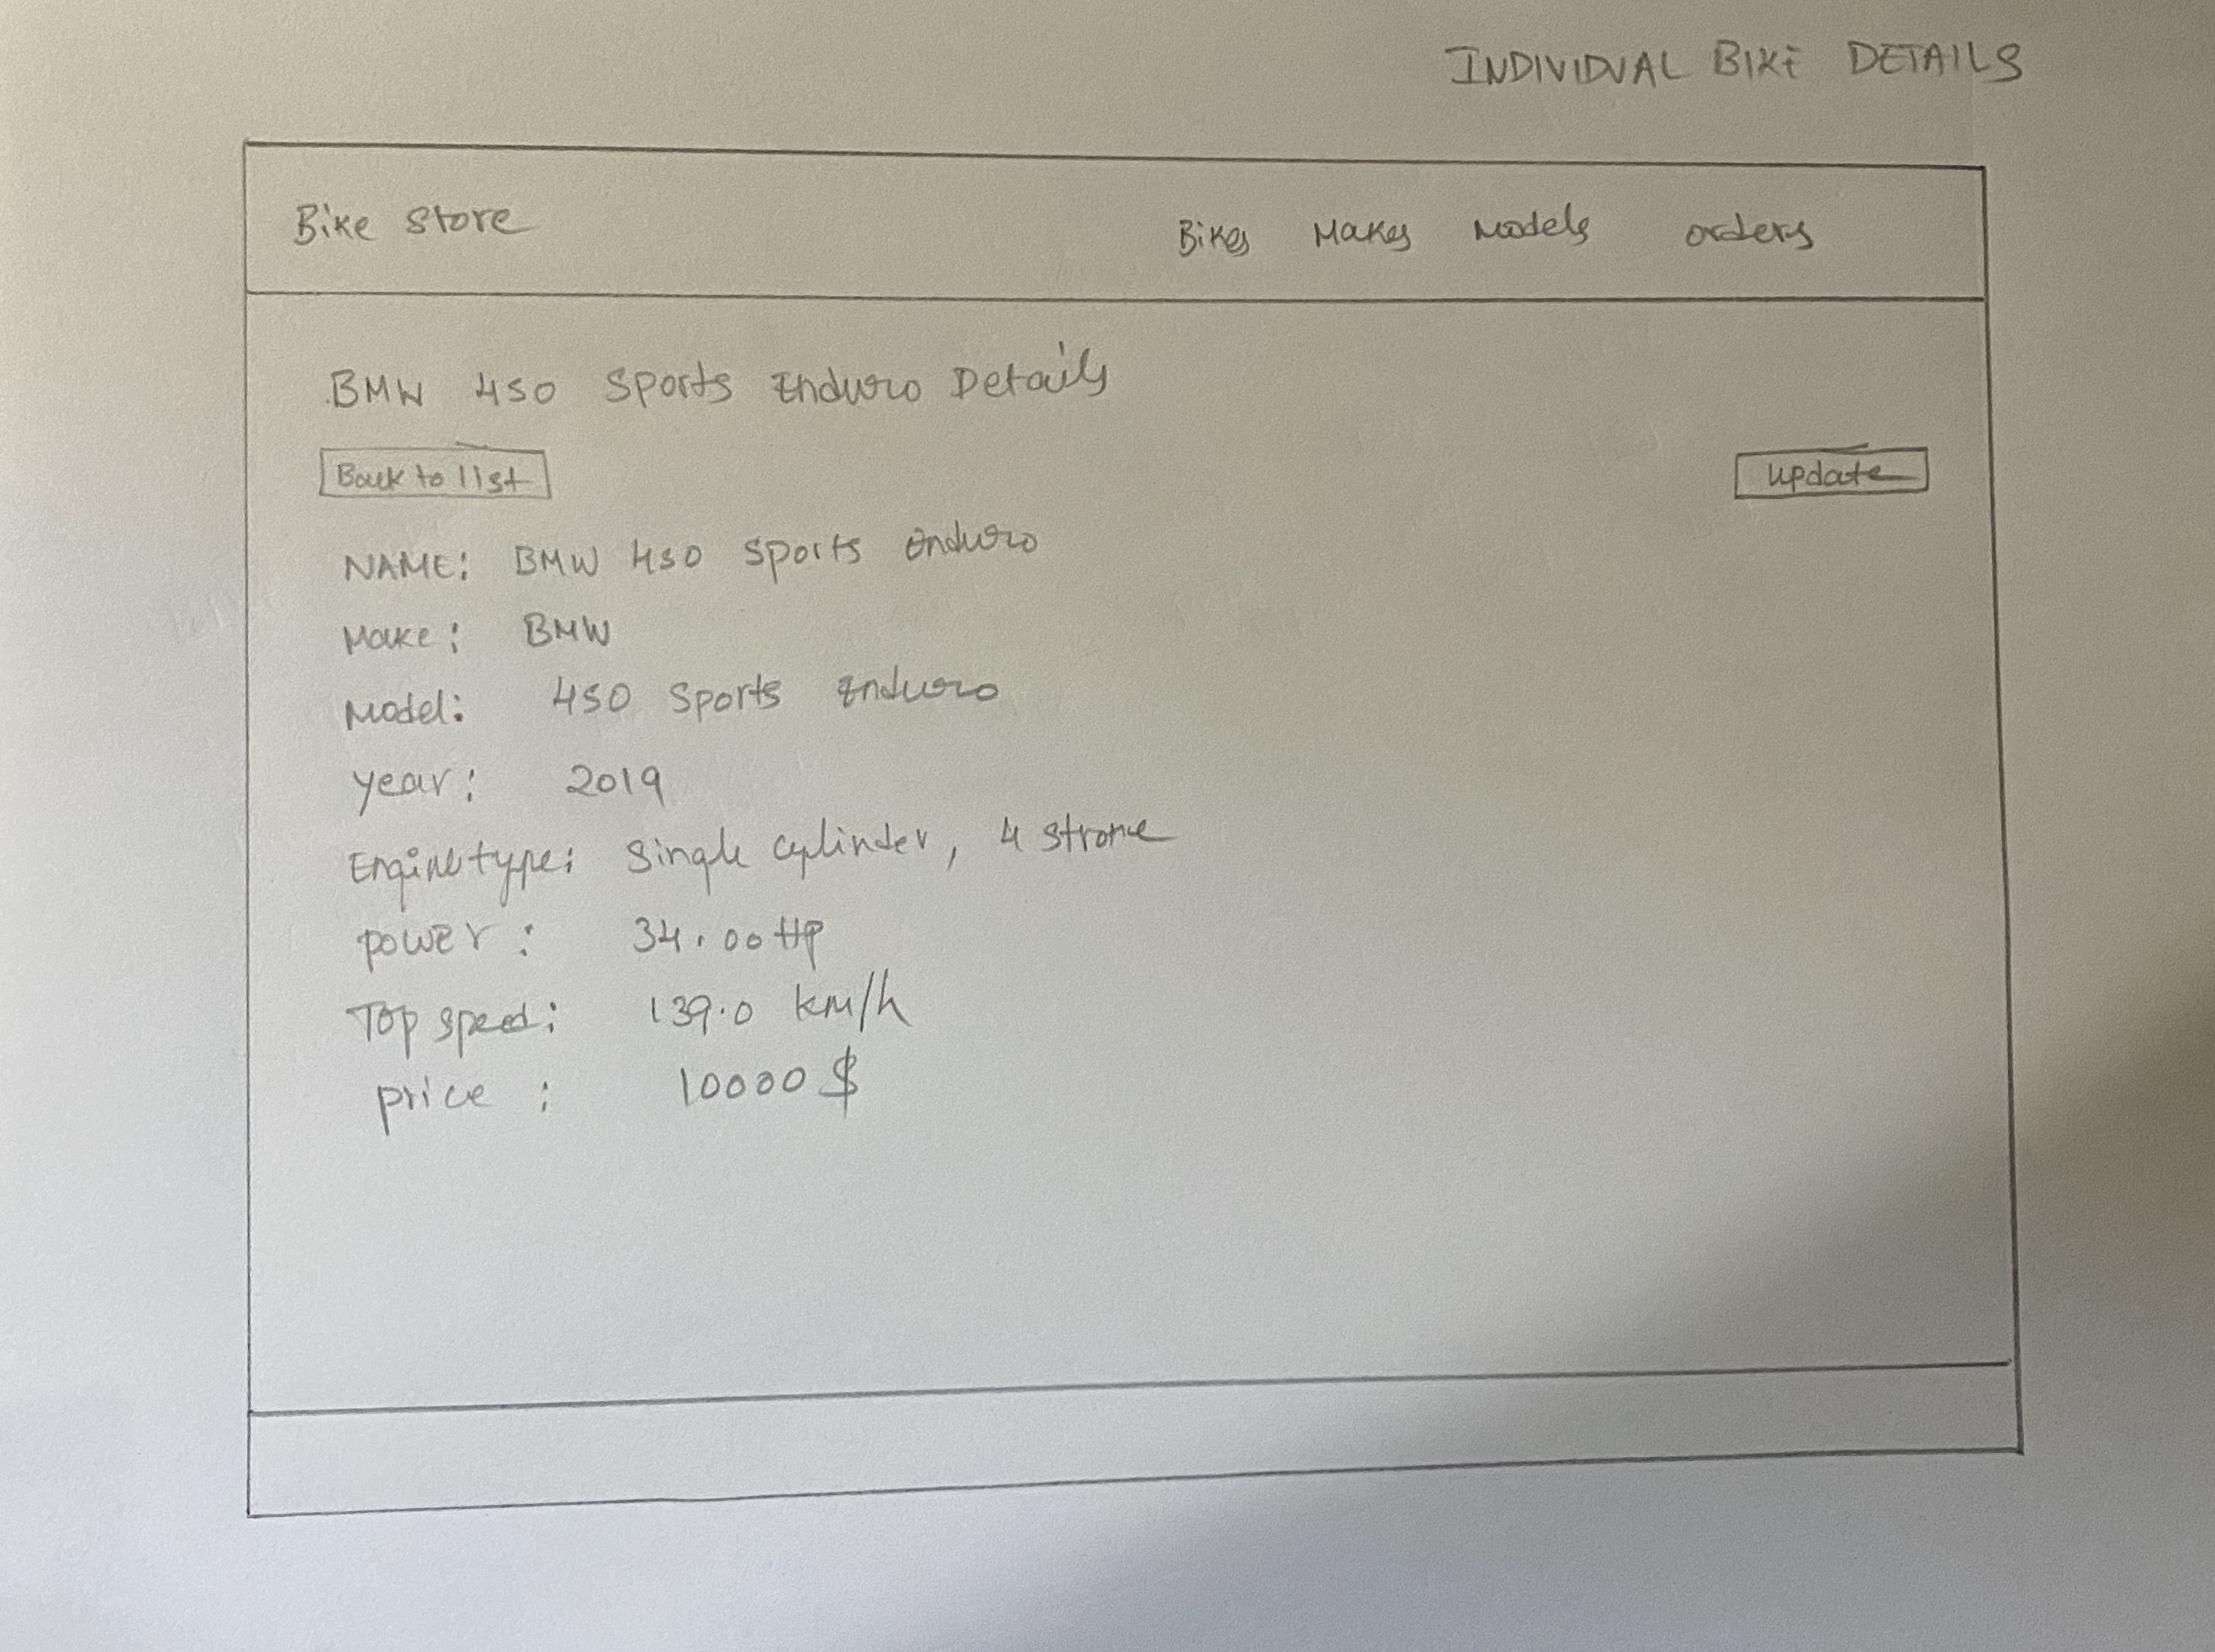 INDIVIDUAL BIKE DETAILS
Bike Store Bikes Makes Models orders
BMW 450 Sports Enduro Details
Back to list update
NAME: BMW 450 Sports Enduro
Make: BMW
Model: 450 Sports Enduro
year: 2019
Engine type: Single cylinder, 4 stroke
power: 34.00 HP
Top speed: 139.0 km/h
price: 10000 $